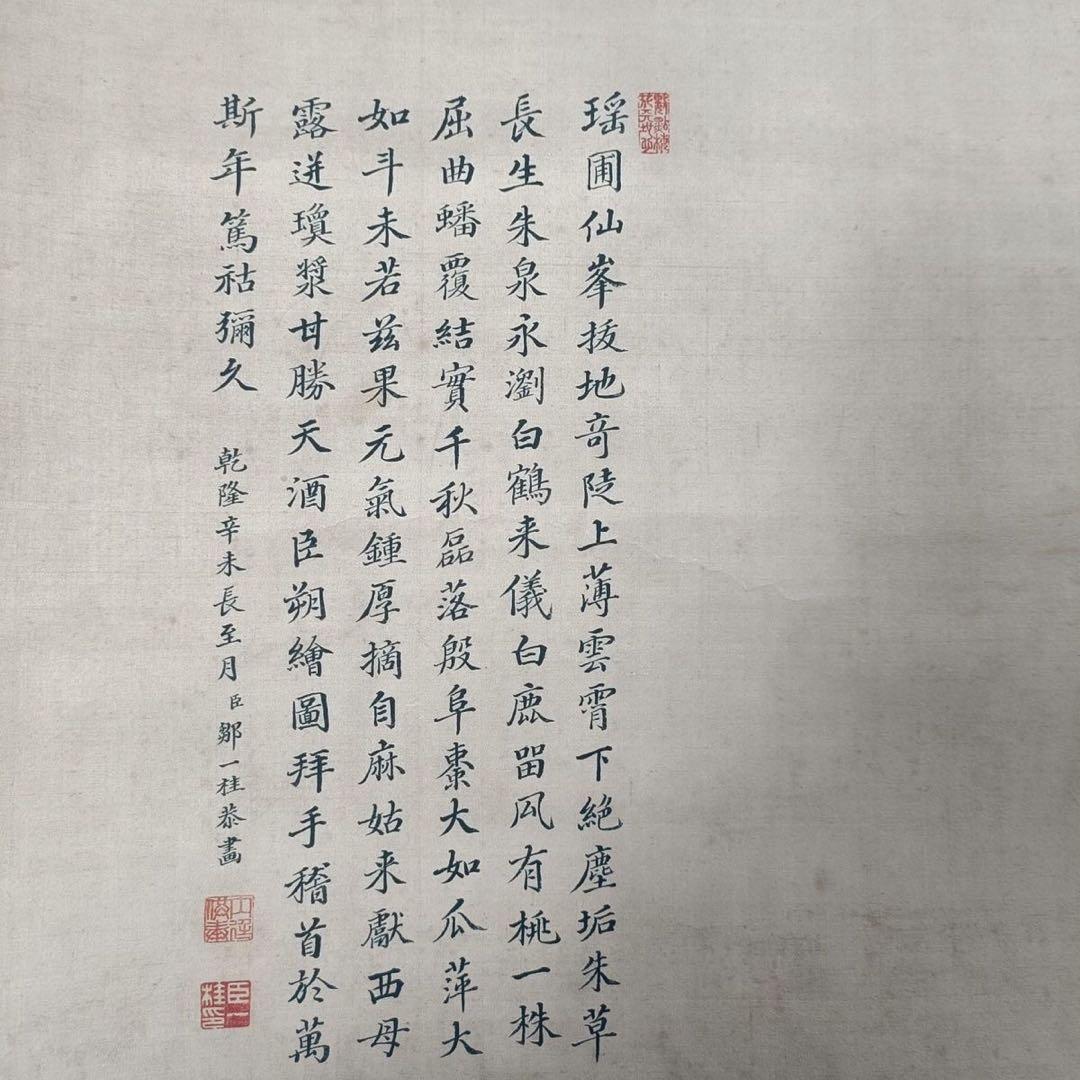 瑶圃仙峯拔地竒陡上薄雲霄下絶塵垢朱草
長生朱泉永瀏白鶴来儀白鹿畱㕡有桃一株
屈曲蟠覆結實千秋磊落殷阜棗大如瓜萍大
如斗未若兹果元氣鍾厚摘自麻姑来獻西母
露迸瓊漿甘勝天酒臣朔繪圖拜手稽首於萬
斯年篤祜彌久
乾隆辛未長至月臣鄒一桂恭畫
臣一桂印